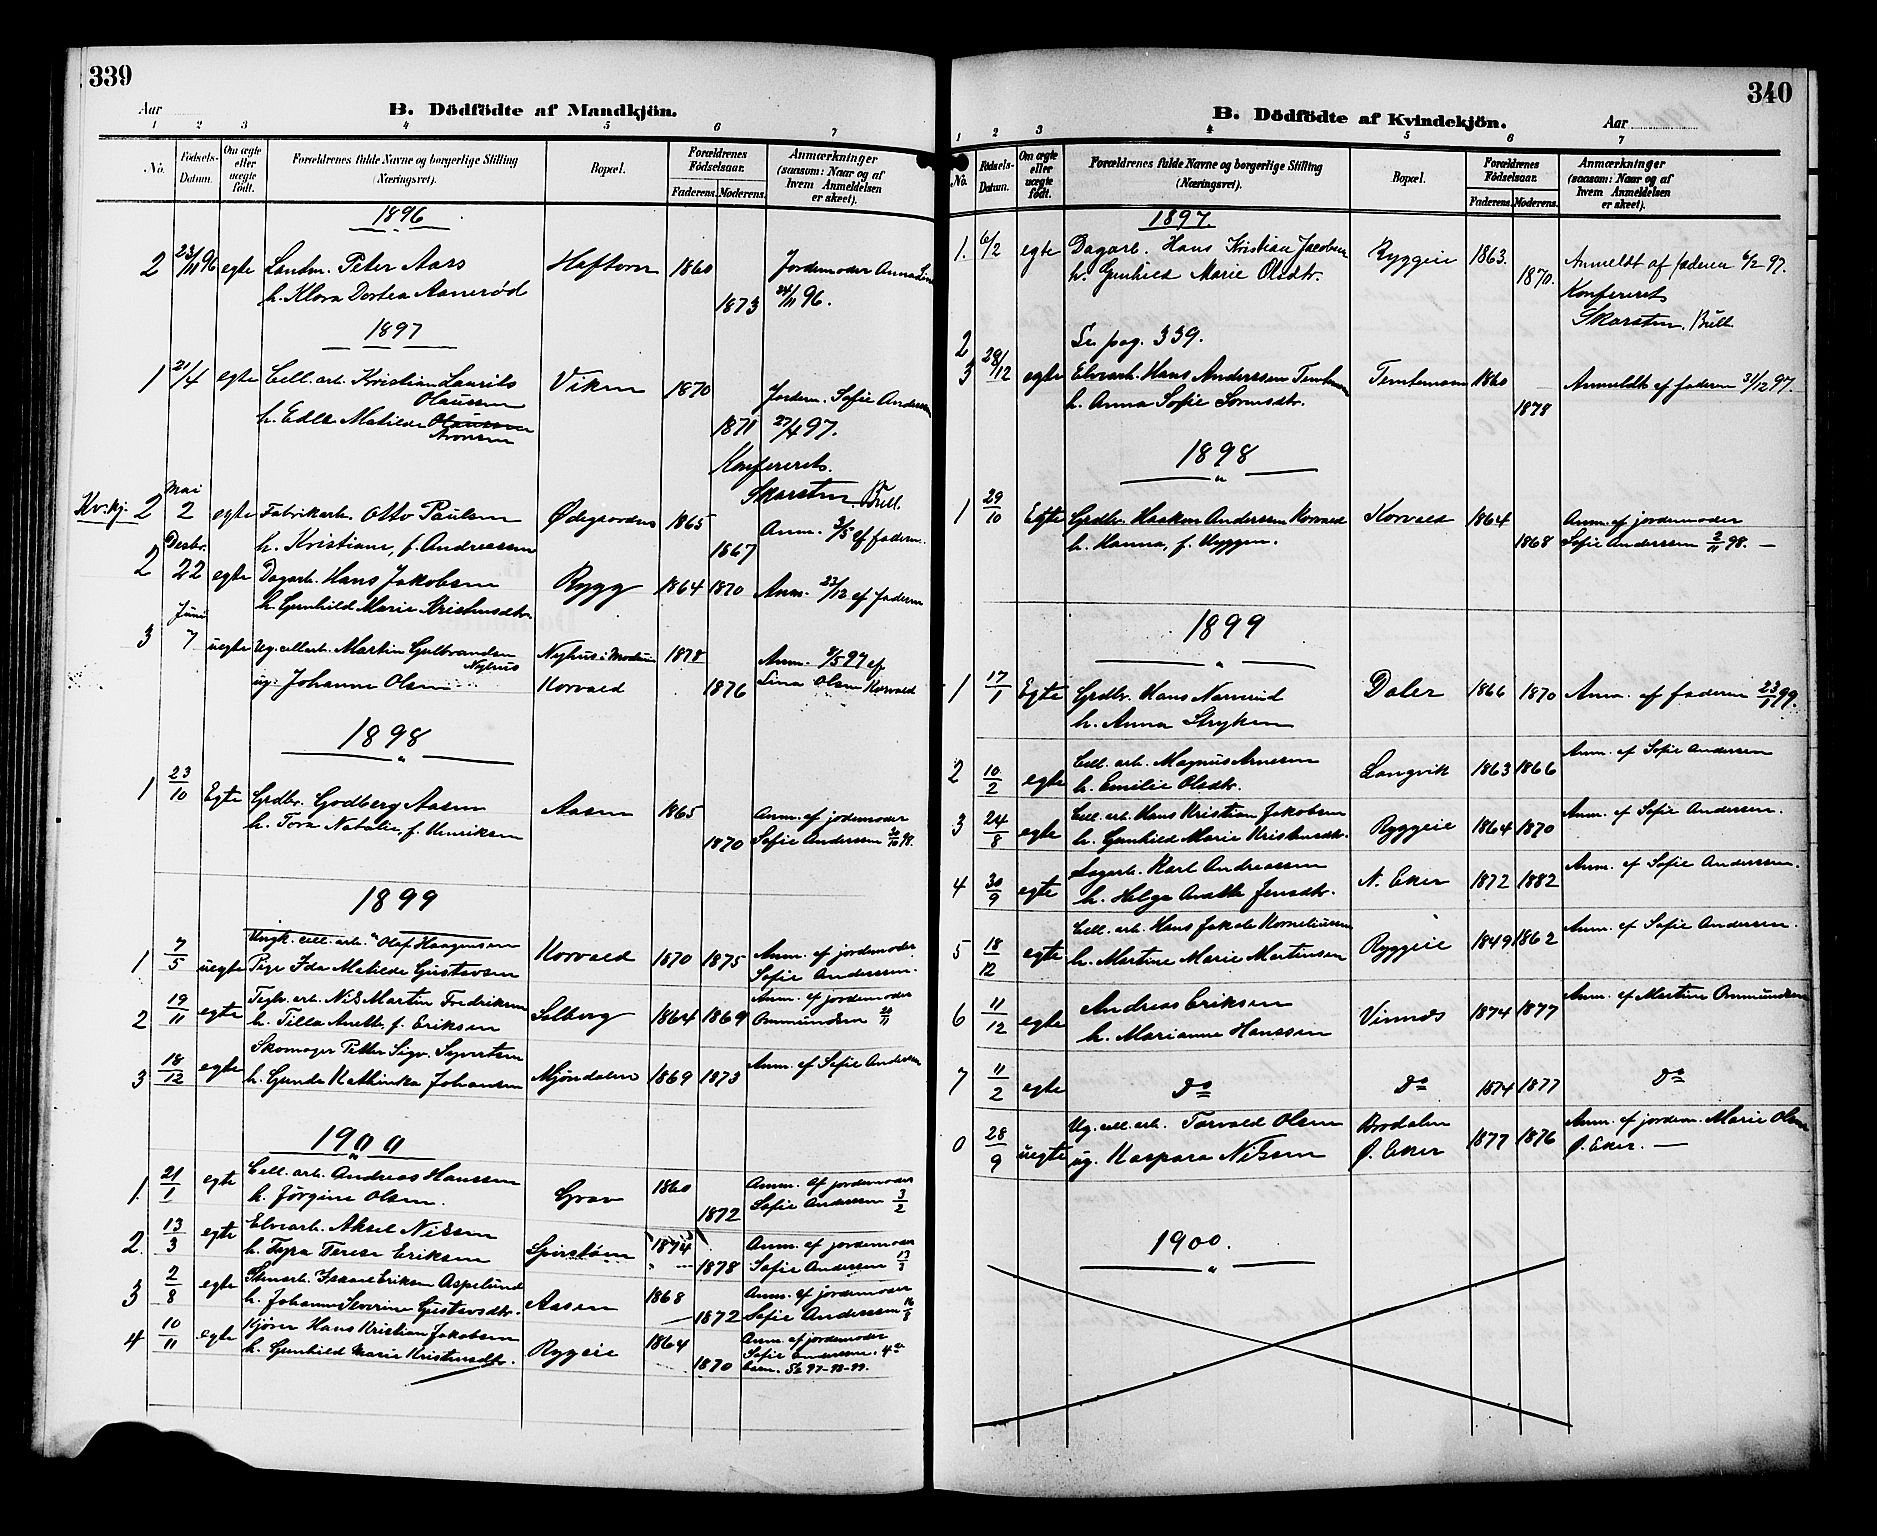 339
Aar
B. Dödfödte af Mandkjön.
1 2 3 4 5 6 7
No. Födsels-Datum. Om ægte eller uægte födt. Forældrenes fulde Navne og borgerlige Stilling (Næringsvei). Bopæl. Forældrenes Fødselsaar. Faderens. Moderens. Anmærkninger (saasom: Naar og af hvem Anmeldelsen er skeet).
1896
2 23/11 96 egte Landm. Peter Aars Haftorn 1860 Jordemoder Anna
h. Klara Dortea Aanerød 1873 24/11 96.
1897
1 21/4 egte Cell. arb. Kristian Laurits Viken 1870
Olaussen Jordem. Sofie Andersen
h. Edle Matilde Olaussen 1871 27/4 97.
Aronsen
Konfereret.
Skarsten Bull.
Kv. kj. 2 Mai 2 egte Fabrikarb. Otto Paulsen Ødegaarden 1865 Anm. 3/5 af faderen.
h. Kristiane, f. Andreassen 1867
2 Decbr. 22 egte Dagarb. Hans Jakobsen Rygg 1864 1870 Anm. 23/12 af faderen
h. Gunhild Marie Kristensdtr.
3 Juni 7 uegte Ug. cellarb. Martin Gulbrandsen Nyhus i Modum 1878 Anm. 8/5 97 af
Nyhus
ug. Johanne Olsen Korvald 1876 Lina Olsen Korvald
1898
1 23/10 Egte Grdbr. Godberg Aasen Aasen 1865 Anm. af jordemoder
h. Tora Natalie, f. Henriksen 1870 Sofie Anderssen 98.
1899
1 7/5 uegte Ungk. cell. arb. Olaf Haagensen Korvald 1870 1875 Anm. af jordemoder
Pige Ida Matilde Gustavsen Sofie Anderssen.
2 19/11 egte Teglv. arb. Nils Martin Fredriksen Solberg 1864 1869 Anm. af jordemoder
h. Tilla Anette f. Eriksen Ommundsen
3 18/12 egte Skomager Petter Sigv. Sypertsen Mjøndalen 1869 1873 Anm. af Sofie Andersen
h. Gunda Kathinka Johansen
1900
1. 21/1 egte Cell. arb. Andreas Hanssen Grav 1860 Anm. af jordemoder
h. Jørgine Olsen. 1872 Sofie Anderssen 3/2
2. 13/3 egte Elvearb. Aksel Nilssen 1874 Anm. af jordemoder
h. Fyra Terese Eriksen 1878 Sofie Anderssen 13/3
3 2/8 egte Stenarb. Isak Eriksen Aspelund Aasen 1868 Anm. af jordemoder
h. Johanne Severine Gustavsdtr. 1872 Sofie Anderssen
4 10/11 egte Kjører Hans Kristian Jakobsen Ryggeie 1864 Anm. af jordemoder
h. Gunhild Marie Kristensdtr. 1870 Sofie Anderssen. 4de
barn. Se 97-98-99.
340
B. Dödfödte af Kvindekjön.
Aar
1 2 3 4 5 6 7
No. Födsels-Datum. Om ægte eller uægte födt. Forældrenes fulde Navne og borgerlige Stilling (Næringsvei). Bopæl. Forældrenes Fødselsaar. Faderens. Moderens. Anmærkninger (saasom: Naar og af hvem Anmeldelsen er skeet).
1897.
1. 6/2 egte Dagarb. Hans Kristian Jacobsen Ryggeie 1863. Anmeldt af faderen 6/2 97.
h. Gunhild Marie Olsdtr. 1870. Konfereret
Skarsten. Bull.
2 Se pag. 339.
3 28/12 egte Elvearb. Hans Anderssen 1860 Anmeldt af faderen 31/12 97.
h. Anna Sofie 1878
1898
1 29/10 Egte Grdbr. Haakon Anderssen Korvald Korvald 1864 Anm. af jordemoder
h. Hanna, f. Hyggen. 1868 Sofie Anderssen 2/11 98. —
1899
1 17/1 Egte Grdbr. Hans Narverud Daler 1866 1870 Anm. af faderen 23/1 99.
h. Anna Stryken
2 10/2 egte Cell. arb. Magnus Arnesen Langvik 1863 1866 Anm. af Sofie Andersen
h. Emilie Olsdtr.
3 24/8 egte Cell. arb. Hans Kristian Jakobsen Ryggeie 1864 1870 Anm. af Sofie Andersen.
h. Gunhild Marie Kristensdtr.
4 30/9 egte Sagarb. Karl Andreassen N. Eker 1872 1882 Anm. af Sofie Anderssen.
h. Helga Anette Jensdtr.
5 18/12 egte Cell. arb. Hans Jakob Korneliussen Ryggeie 1849 1862 Anm. af Sofie Andersen.
h. Martine Marie Martinsen
6 11/12 egte Andreas Eriksen Vinnes 1874 1877 Anm. af Martine Ommundsen
h. Marianne Hanssen
7 11/2 egte Do Do 1874 1877 Do
0 28/9 uegte Ug. cell. arb. Torvald Olsen Brodalen 1877 1876 Anm. af jordem. Marie Olsen
ug. Kaspara Nilssen Ø. Eker Ø. Eker. —
1900.